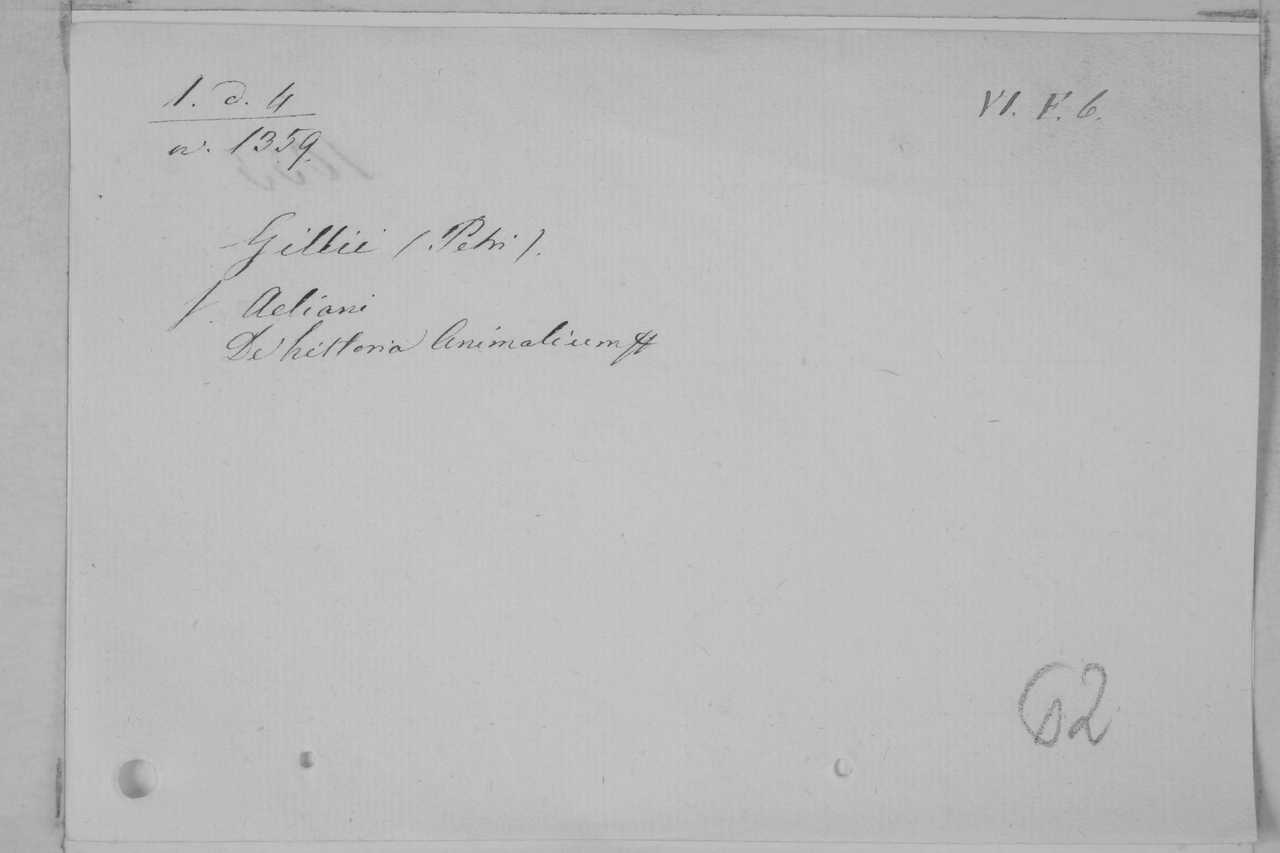 1. d. 4
VI. F. 6.
w. 1359.
Gillii (Petri).
f. Aeliani
De historia Animalium
62